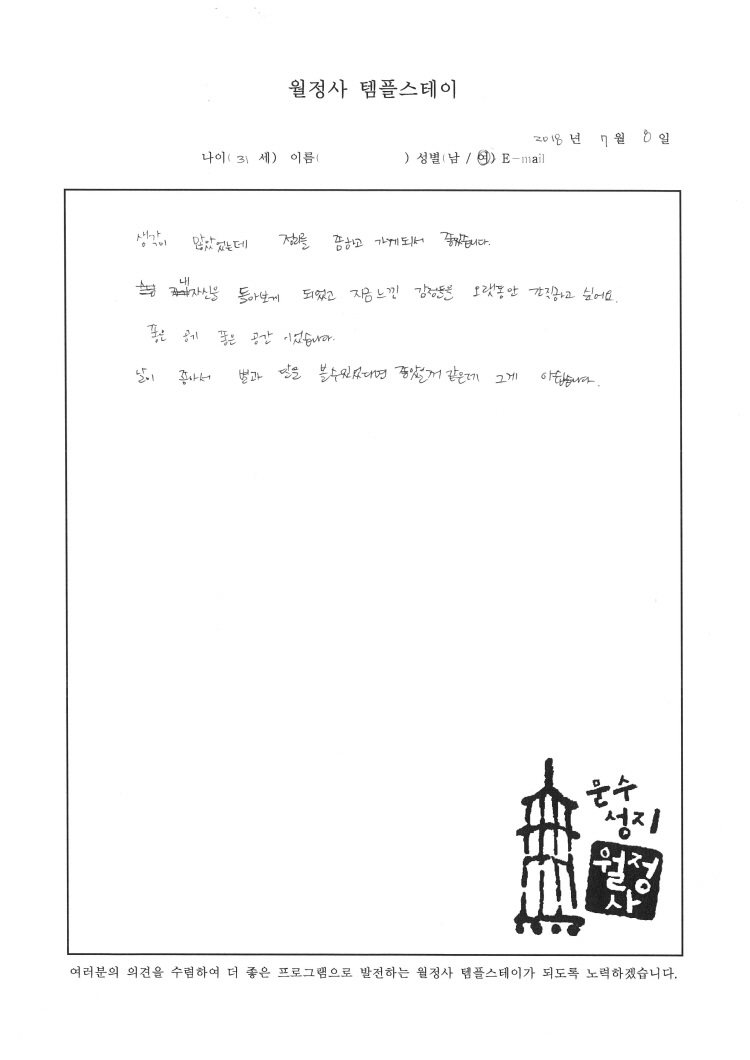 월정사 템플스테이
2018 년 7 월 8 일
나이( 31 세) 이름( ) 성별(남 / 여) E-mail
생각이 많았었는데 정리를 좀하고 가게되서 좋았습니다.
내 자신을 돌아보게 되었고 지금 느낀 감정들을 오랫동안 간직하고 싶어요.
좋은 공기 좋은 공간 이었습니다.
날이 좋아서 별과 달을 볼수있었다면 좋았을거 같은데 그게 아쉽습니다.
문수
성지
월정
사
여러분의 의견을 수렴하여 더 좋은 프로그램으로 발전하는 월정사 템플스테이가 되도록 노력하겠습니다.